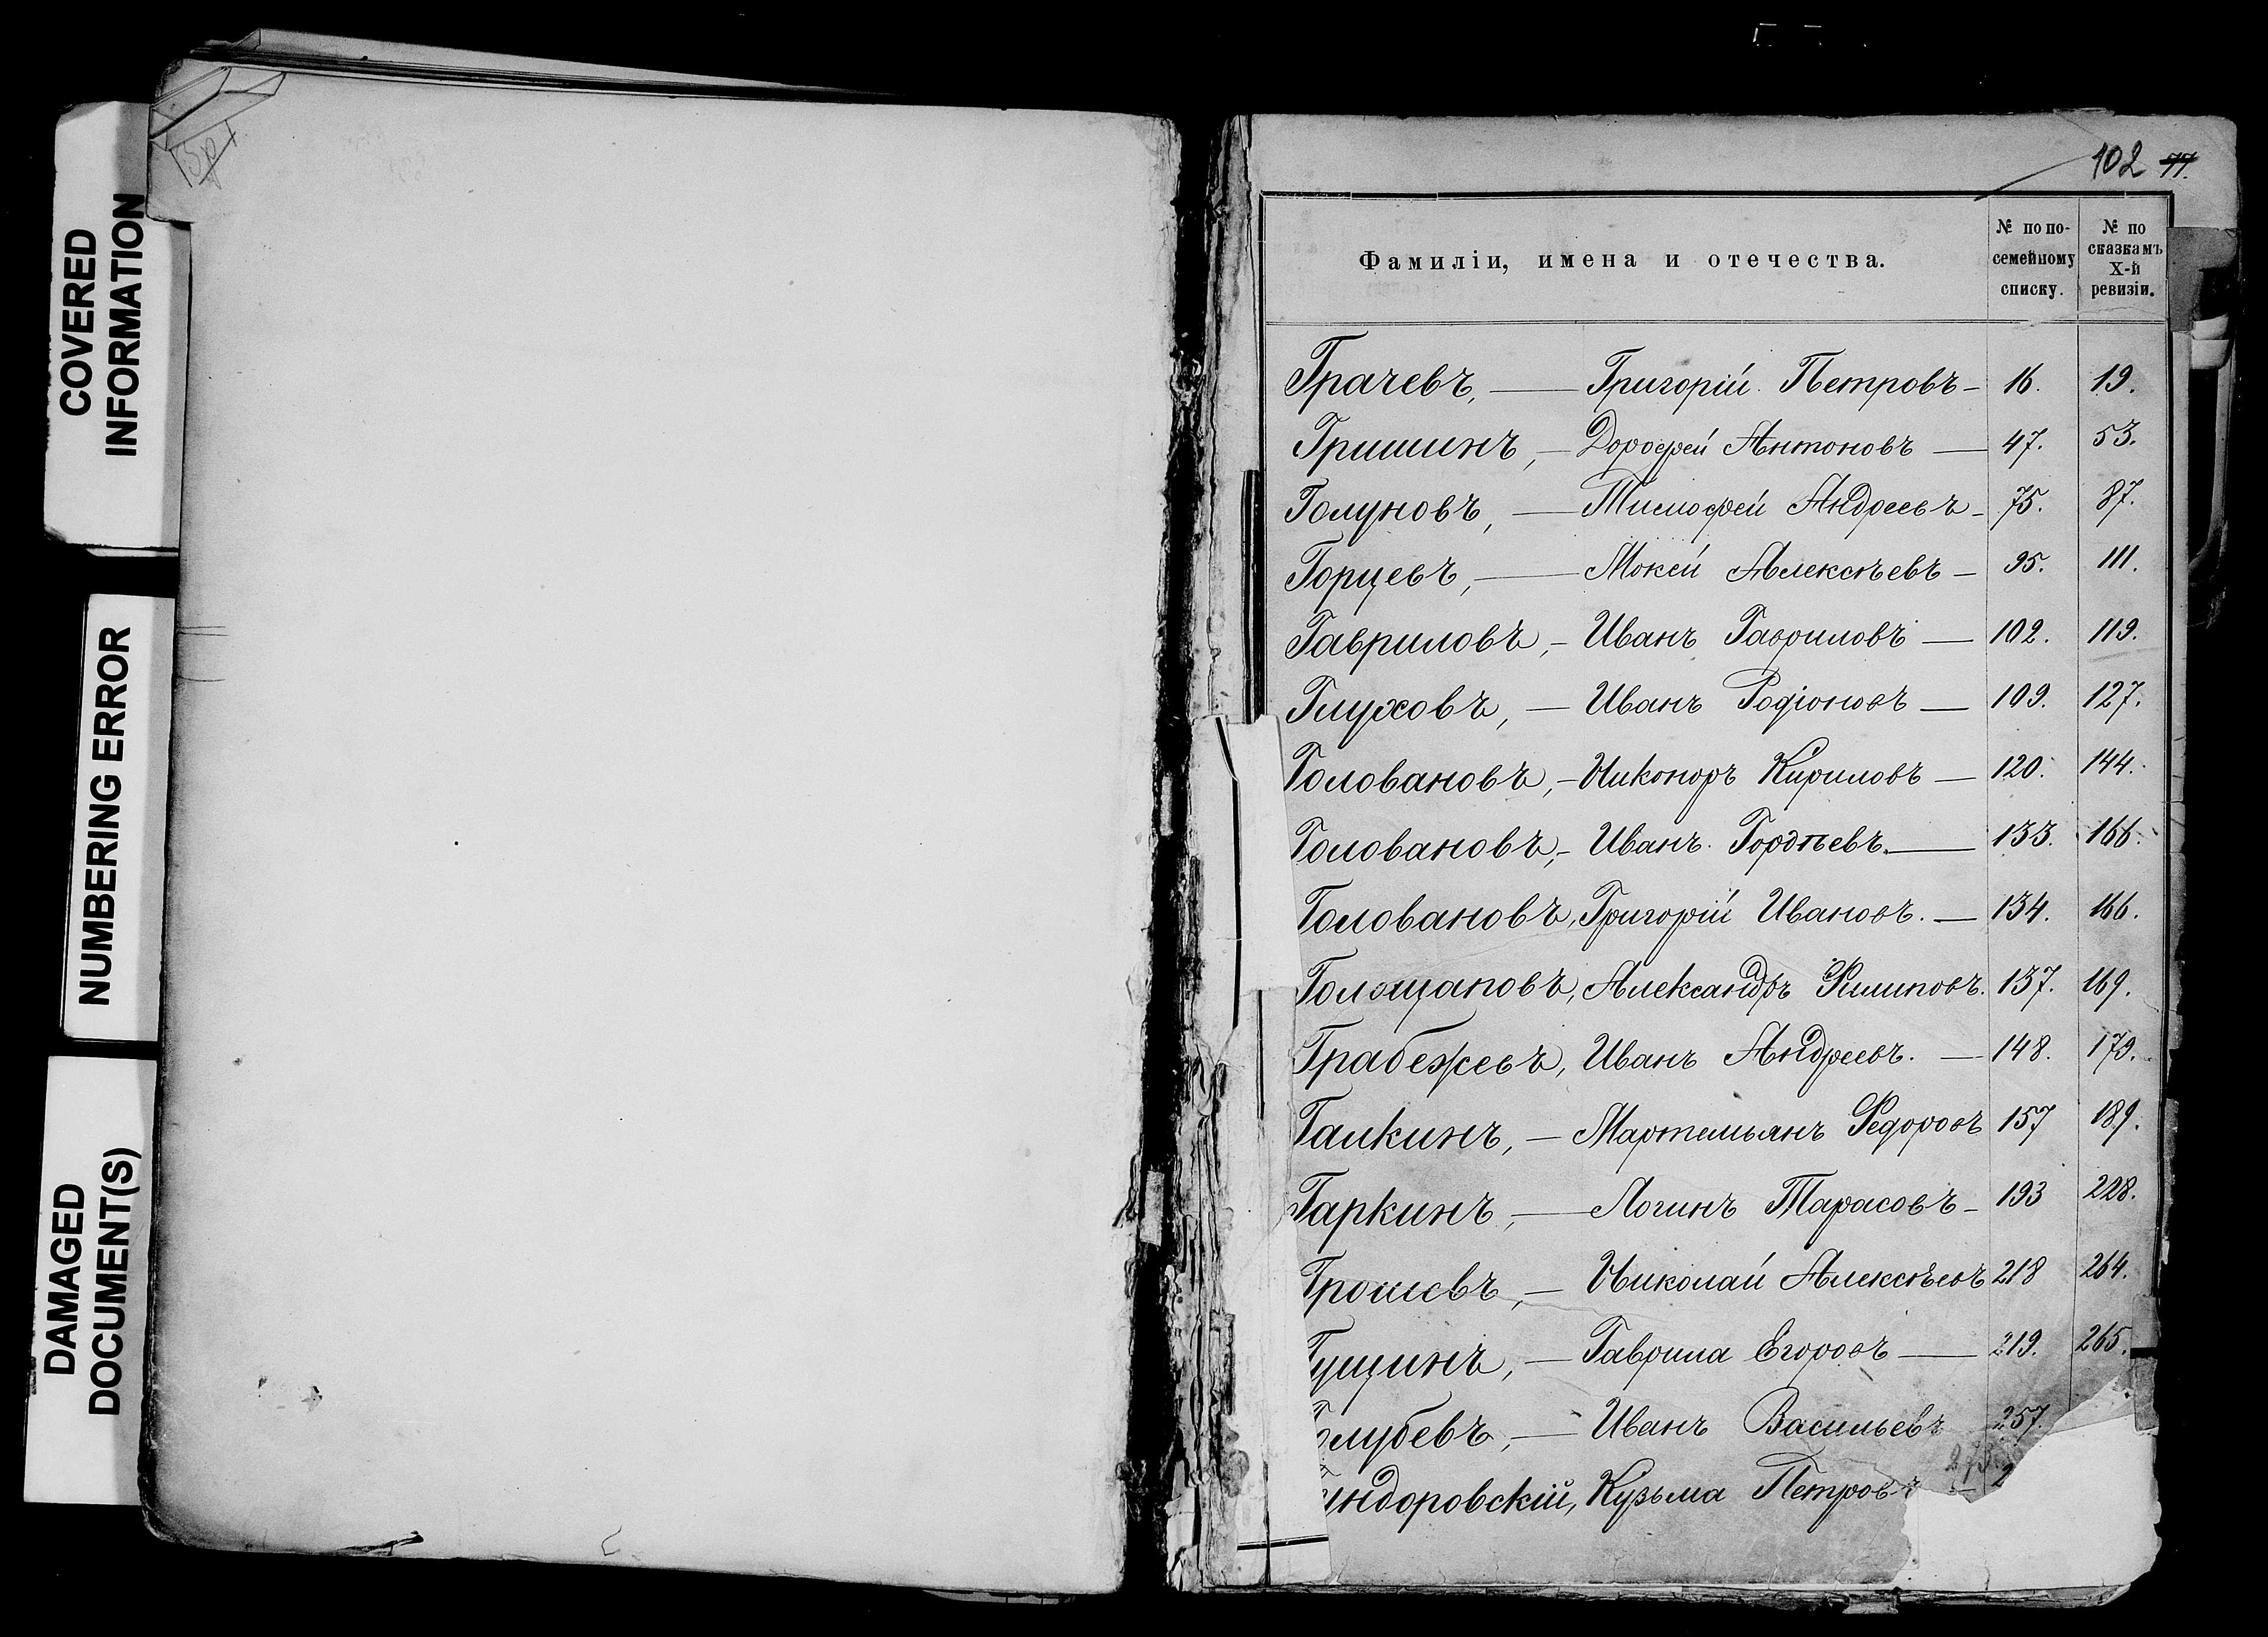 COVERED
INFORMATION
NUMBERING ERROR
DAMAGED
DOCUMENT(S)
102 77.
Фамиліи, имена и отечества.
№ по по-
семейному
списку.
№ по
сказкамъ
X-й
ревизіи.
Грачевъ, — Григорій Петровъ — 16. 19.
Гришинъ, — Дорофей Антоновъ — 47. 53.
Голуновъ, — Тимофей Андреевъ — 75. 87.
Горцевъ, — Мокей Алексѣевъ — 95. 111.
Гавриловъ, — Иванъ Гавриловъ — 102. 119.
Глуховъ, — Иванъ Родіоновъ — 109. 127.
Головановъ, — Никоноръ Кириловъ — 120. 144.
Головановъ, — Иванъ Гордѣевъ — 133. 166.
Головановъ, Григорій Ивановъ. — 134. 166.
Голощаповъ, Александръ Филиповъ. 137. 169.
Грабежевъ, Иванъ Андреевъ. — 148. 179.
Галкинъ, — Мартемьянъ Федоровъ 157 189.
Гаркинъ, — Логинъ Тарасовъ — 193 228.
Грошевъ, — Николай Алексѣевъ 218 264.
Гущинъ, — Гаврила Егоровъ — 219. 265.
олубевъ, — Иванъ Васильевъ 257.
ндоровскій, Кузьма Петровъ — 2